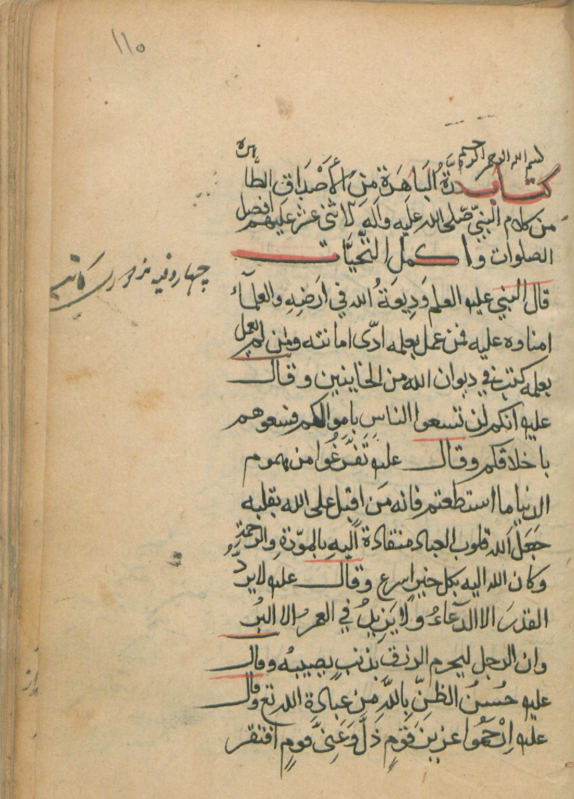 ۱۱۰
بسم الله الرحمن الرحيم
كتاب درة الباهرة من الأصداف الطاهرة
من كلام النبي صلى الله عليه وآله لاثنى عشر عليهم افضل
الصلوات واكمل التحيّات
قال النبي عليه العلم وديعة الله في ارضه والعلمآء
امناوه عليه فمن عمل بعلمه ادّى امانته ومن لم يعمل
بعلمه كتب في ديوان الله من الخاينين وقال
عليه انكم لن تسعوا الناس باموالكم فسعوهم
باخلاقكم وقال عليه تَفَرَّغُوا من هموم
الدنيا ما استطعتم فانه من اقبل على الله بقلبه
جَعَلَ الله قلوب العباد منقادة اليه بالمودّة والرحمة
وكان الله اليه بكل خير اسرع وقال عليه لا يردّ
القدر الا الدعاءُ ولا يزيدُ في العمر الا البر
وان الرجل ليحرم الرزق بذنب يصيبه وقال
عليه حُسنُ الظنّ بالله من عبادة الله تع وقال
عليه اِرْحَمُوا عزيز قومٍ ذلّ وغنيّ قومٍ افتقر